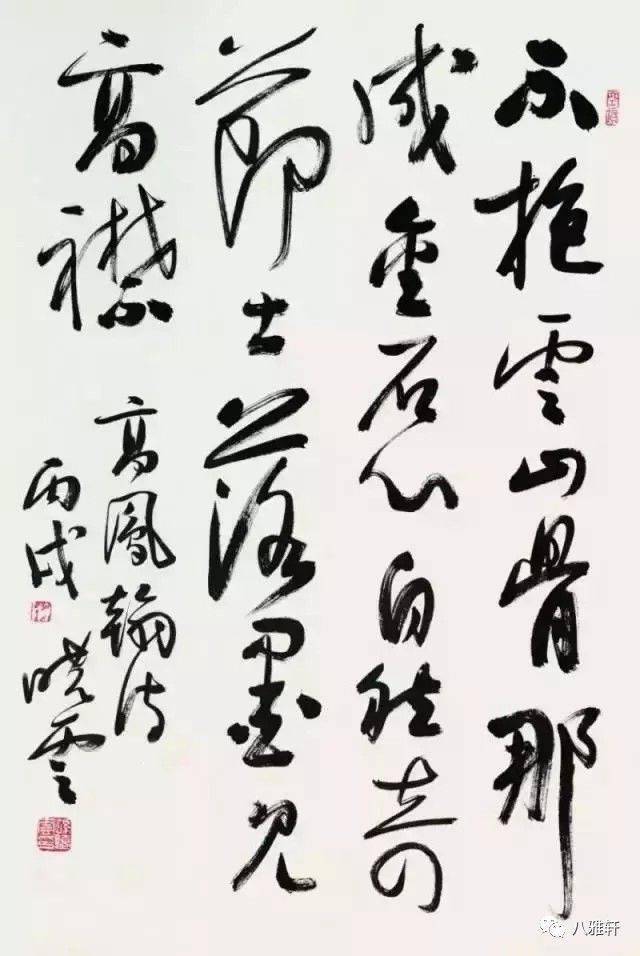 不抱雲山骨那
成金石心自然奇
節士落墨見
高襟
高鳳翰诗
丙戌曉雲
八雅轩